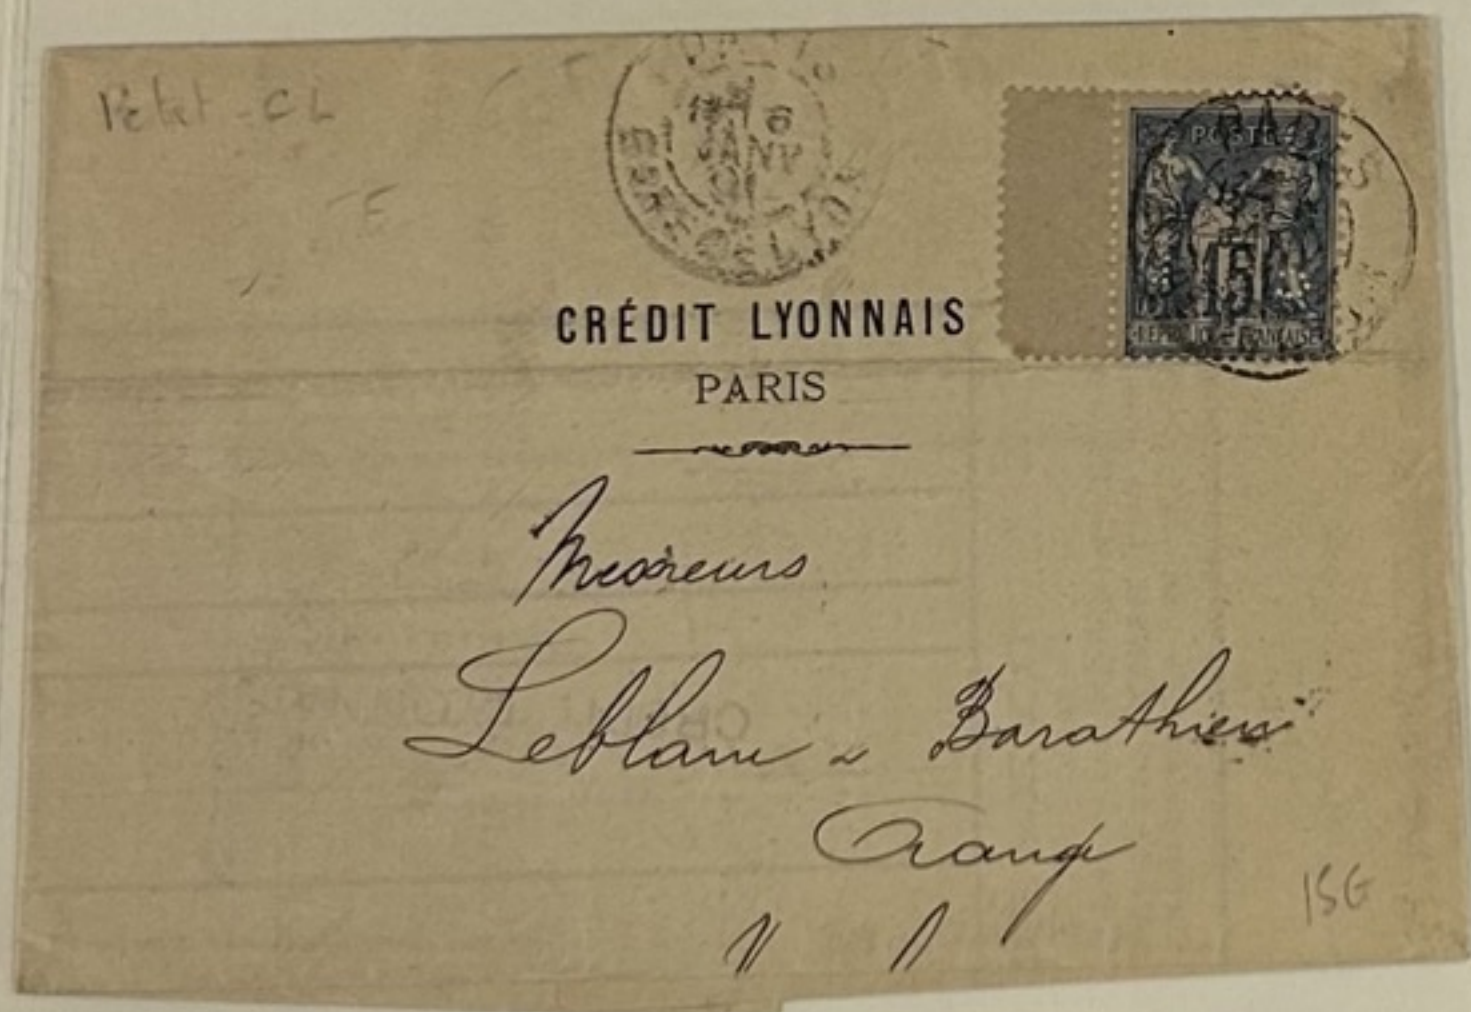 CL
PARIS
6
JANV
01
POSTES
15
REPUBLIQUE FRANCAISE
CRÉDIT LYONNAIS
PARIS
Messieurs
Leblanc & Barathieu
Orange
15G